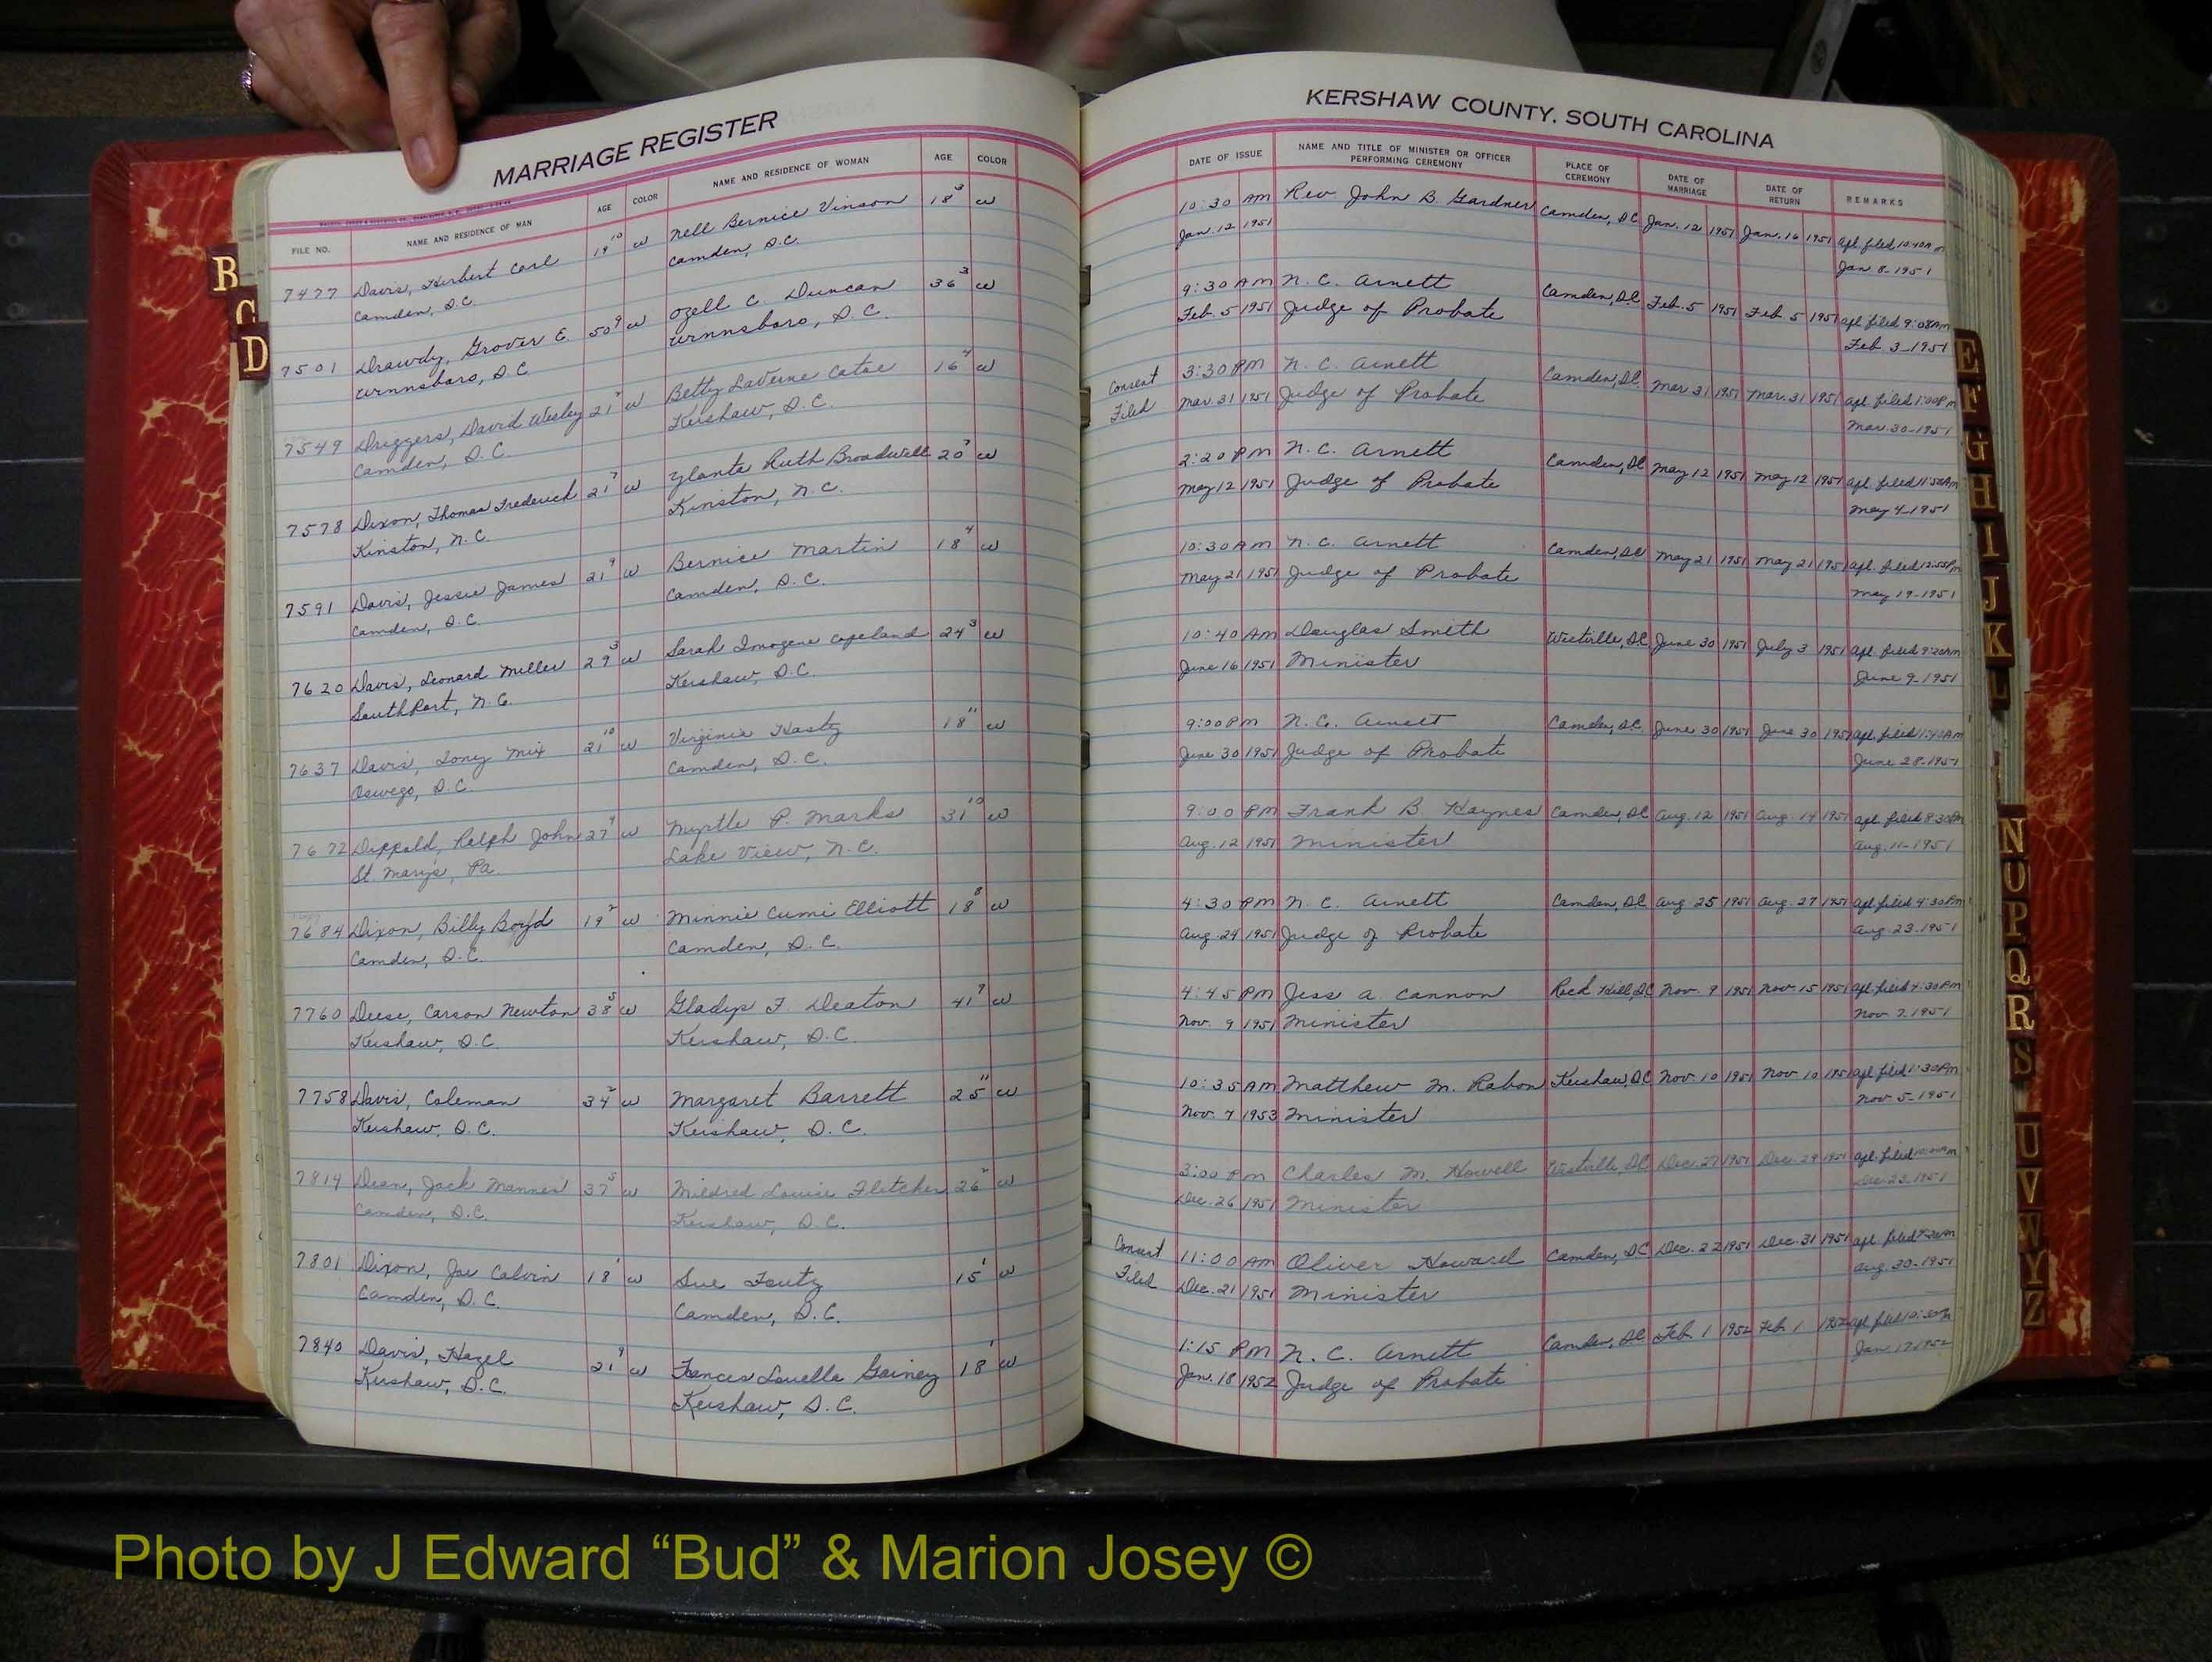 MARRIAGE REGISTER
FILE NO. NAME AND RESIDENCE OF MAN AGE COLOR NAME AND RESIDENCE OF WOMAN AGE COLOR
7477 Davis, Herbert Carl 19 10 w Nell Bernice Vinson 18 3 w
Camden, S.C. Camden, S.C.
7501 Drawdy, Grover E. 50 9 w Ozell C. Duncan 36 3 w
Winnsboro, S.C. Winnsboro, S.C.
7549 Driggers, David Wesley 21 w Betty LaVerne Catoe 16 4 w
Camden, S.C. Kershaw, S.C.
7578 Dixon, Thomas Frederick 21 7 w Ruth Broadwell 20 7 w
Kinston, N.C. Kinston, N.C.
7591 Davis, Jessie James 21 9 w Bernice Martin 18 4 w
Camden, S.C. Camden, S.C.
7620 Davis, Leonard Miller 29 3 w Sarah Imogene Copeland 24 3 w
SouthPort, N.C. Kershaw, S.C.
7637 Davis, Tony Mix 21 10 w Virginia Hasty 18 11 w
Oswego, S.C. Camden, S.C.
7672 Dippold, Ralph John 27 w Myrtle P. Marks 31 10 w
St. Mary's, Pa. Lake View, N.C.
7684 Dixon, Billy Boyd 19 2 w Minnie Cumi Elliott 18 8 w
Camden, S.C. Camden, S.C.
7760 Deese, Carson Newton 38 5 w Gladys F. Deaton 41 7 w
Kershaw, S.C. Kershaw, S.C.
7758 Davis, Coleman 34 2 w Margaret Barrett 25 11 w
Kershaw, S.C. Kershaw, S.C.
7814 Dean, Jack Manness 37 5 w Mildred Louise Fletcher 26 2 w
Camden, S.C. Kershaw, S.C.
7801 Dixon, Joe Calvin 18 1 w Sue Foutz 15 1 w
Camden, S.C. Camden, S.C.
7840 Davis, Hazel 21 9 w Frances Louella Gainey 18 1 w
Kershaw, S.C. Kershaw, S.C.
KERSHAW COUNTY, SOUTH CAROLINA
DATE OF ISSUE NAME AND TITLE OF MINISTER OR OFFICER PERFORMING CEREMONY PLACE OF CEREMONY DATE OF MARRIAGE DATE OF RETURN REMARKS
10:30 AM Rev. John B. Gardner Camden, S.C. Jan. 12 1951 Jan. 16 1951 apl. filed 10:40 AM
Jan. 12 1951 Jan. 8-1951
9:30 AM N. C. Arnett Camden, S.C. Feb. 5 1951 Feb. 5 1951 apl. filed 9:08 AM
Feb. 5 1951 Judge of Probate Feb. 3-1951
Consent 3:30 PM N. C. Arnett Camden, S.C. Mar. 31 1951 Mar. 31 1951 apl. filed 1:00 PM
Filed Mar. 31 1951 Judge of Probate Mar. 30-1951
2:20 PM N. C. Arnett Camden, S.C. May 12 1951 May 12 1951 apl. filed 11:50 AM
May 12 1951 Judge of Probate May 4-1951
10:30 AM N. C. Arnett Camden, S.C. May 21 1951 May 21 1951 apl. filed 12:55 PM
May 21 1951 Judge of Probate May 19-1951
10:40 AM Douglas Smith Westville, S.C. June 30 1951 July 3 1951 apl. filed 9:20 AM
June 16 1951 Minister June 9-1951
9:00 PM N. C. Arnett Camden, S.C. June 30 1951 June 30 1951 apl. filed
June 30 1951 Judge of Probate June 28-1951
9:00 PM Frank B Haynes Camden, S.C. Aug. 12 1951 Aug. 14 1951 apl. filed 8:30 PM
Aug. 12 1951 Minister Aug. 11-1951
4:30 PM N. C. Arnett Camden, S.C. Aug 25 1951 Aug. 27 1951 apl. filed 4:30 PM
Aug. 24 1951 Judge of Probate Aug. 23-1951
4:45 PM Jess A. Cannon Rock Hill, S.C. Nov. 9 1951 Nov 15 1951 apl. filed 4:30 PM
Nov. 9 1951 Minister Nov 7-1951
10:35 AM Matthew M. Rabon Kershaw, S.C. Nov. 10 1951 Nov 10 1951 apl. filed 1:30 PM
Nov. 7 1953 Minister Nov 5-1951
3:00 PM Charles M. Howell Westville, S.C. Dec. 27 1951 Dec. 29 1951 apl. filed
Dec. 26 1951 Minister Dec 22-1951
Consent 11:00 AM Oliver Howard Camden, S.C. Dec. 22 1951 Dec. 31 1951 apl. filed
Filed Dec. 21 1951 Minister Aug. 30-1951
1:15 PM N. C. Arnett Camden, S.C. Feb. 1 1952 Feb. 1 1952 apl. filed
Jan. 18 1952 Judge of Probate Jan 17-1952
B
C
D
E
F
G
H
I
J
K
L
N
O
P
Q
R
S
U
V
W
Y
Z
Photo by J Edward “Bud” & Marion Josey ©